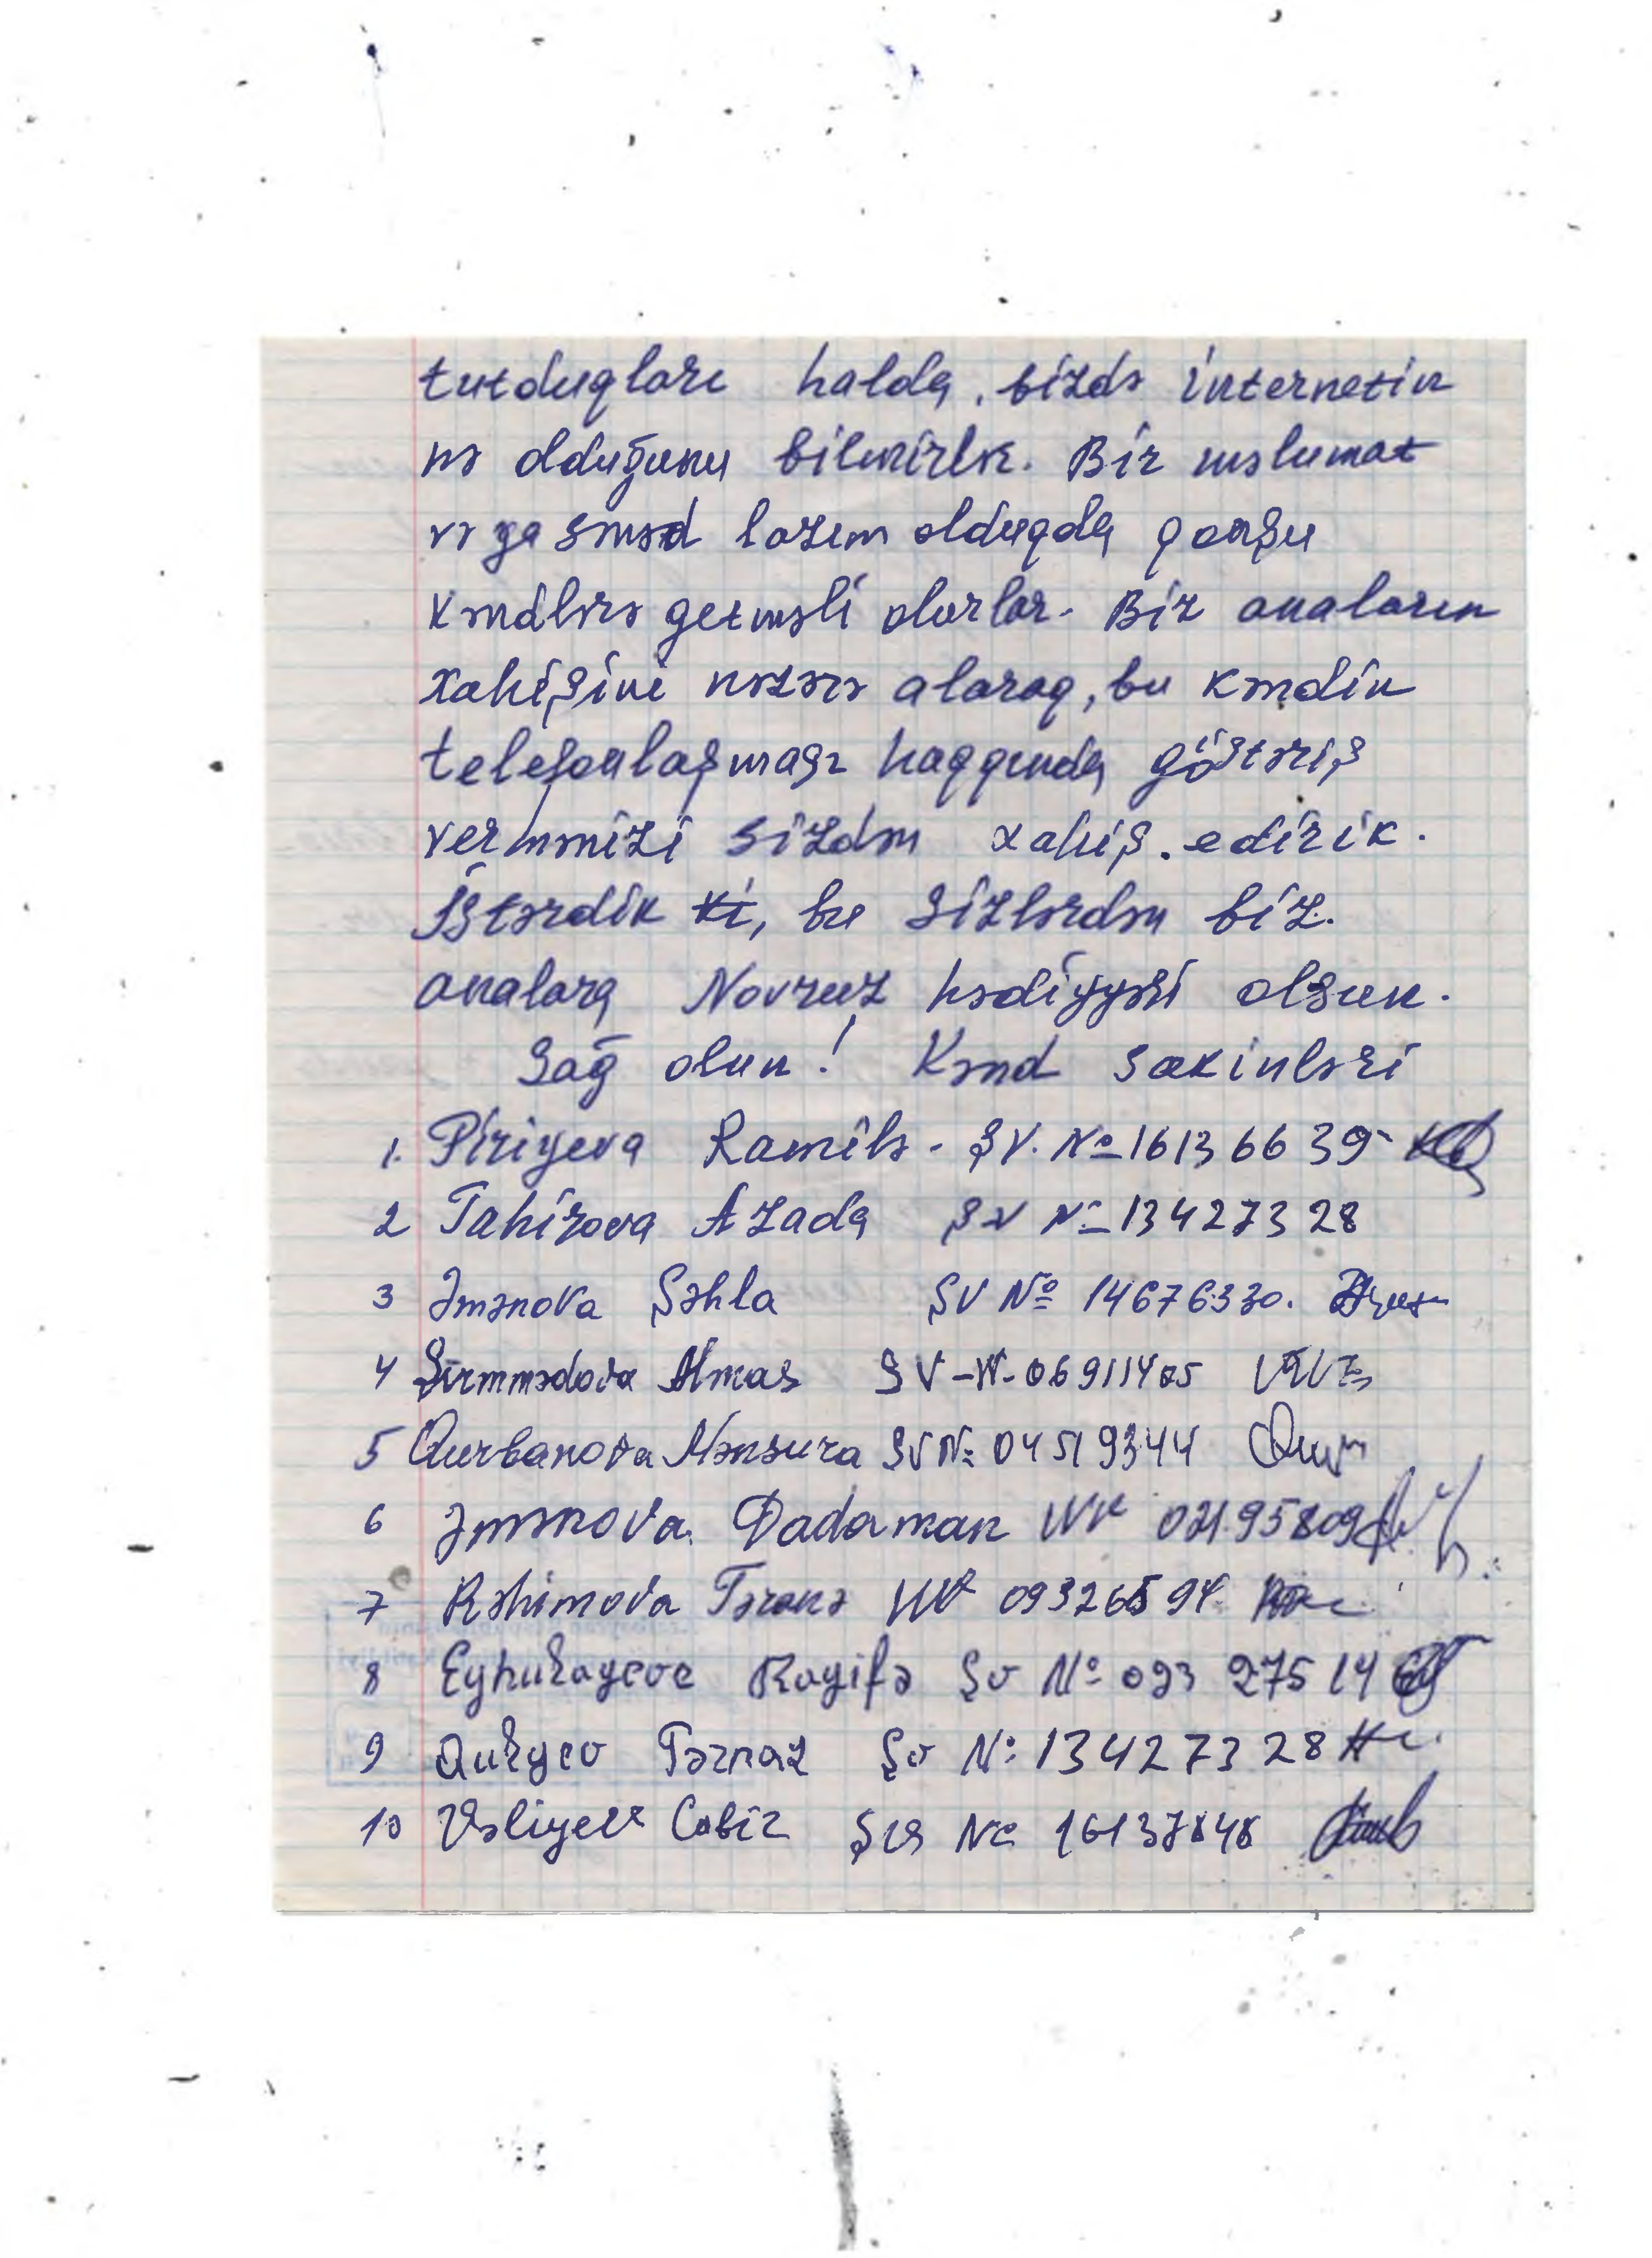 tutduqları halda, bizdə internetin
nə olduğunu bilmirlər. Bir məlumat
və ya sənəd lazım olduqda qonşu
kəndlərə getməli olurlar. Biz anaların
xahişini nəzərə alaraq, bu kəndin
telefonlaşması haqqında göstəriş
vermənizi sizdən xahiş edirik.
İstərdik ki, bu sizlərdən biz
analara Novruz hədiyyəsi olsun.
Sağ olun! Kənd sakinləri
1. Piriyeva Ramilə - ŞV. № 16136639
2 Tahirova Azada ŞV № 13427328
3 Əmənova Şəhla ŞV № 14676330.
4 Almas ŞV-№-06911405
5 Qurbanova Mənsura ŞV № 04519344
6 Əmənova Dadaman
7 Rəhimova Təranə
8 Rayifə Şv № 093 275 14
9 Tərnaz Şv № 13427328
10 Vəliyev Cabir ŞV № 16137848